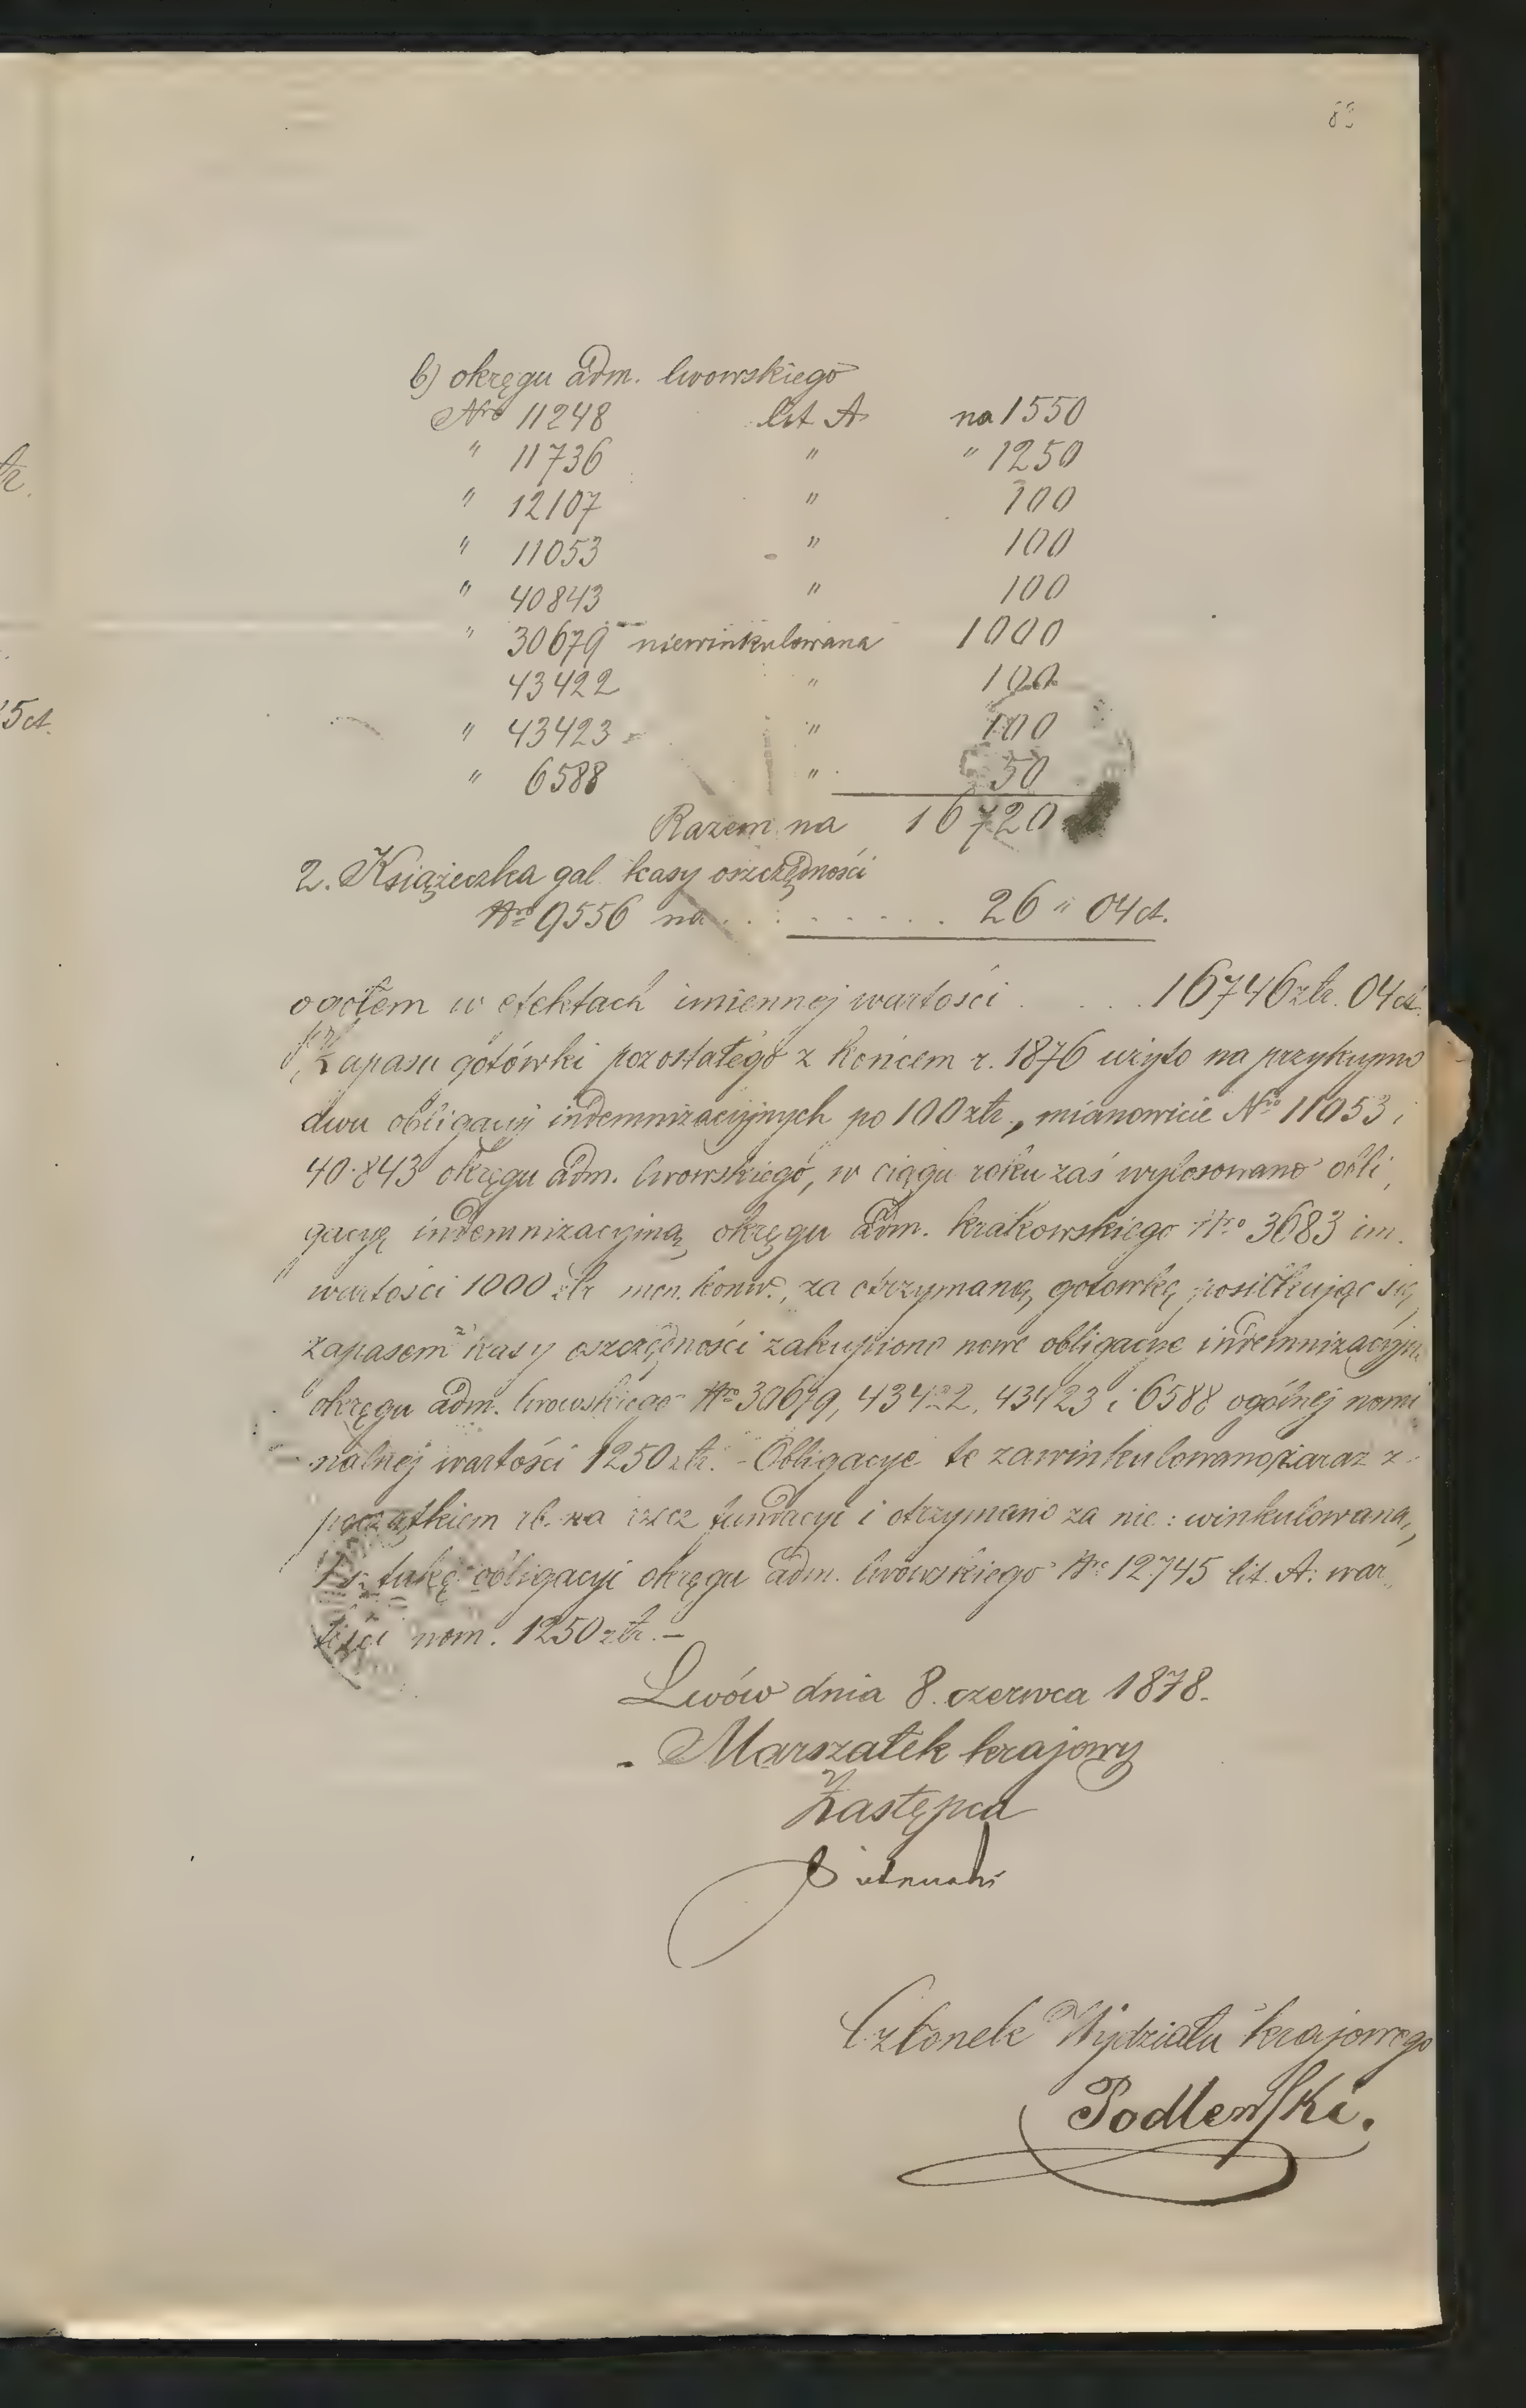 b) okręgu adm. lwowskiego
Nro 11248 lit A na 1550
" 11736 " " 1250
" 12107 " 100
" 11053 " 100
" 40843 " 100
" 30679 niewinkulowana 1000
43422 " 100
" 43423 " 100
" 6588 " 50
Razem na 16720
2. Książeczka gal. kasy oszczędności
Nro 9556 na . . . . . . . 26 " 04 ct.
ogółem w efektach imiennej wartości . . . 16746 złr. 04 ct.
Zapasu gotówki pozostałego z końcem r. 1876 użyto na przykupno
dwu obligacyj indemnizacyjnych po 100 złr., mianowicie Nro 11053 i
40.843 okręgu adm. lwowskiego, w ciągu roku zaś wylosowano obli,
gacyę indemnizacyjną okręgu adm. krakowskiego Nro 3683 im.
wartości 1000 złr mon. konw., za otrzymaną gotówkę posiłkując się
zapasem z kasy oszczędności zakupiono nowe obligacye indemnizacyjn
okręgu adm. lwowskiego Nro 30679, 43422, 43423 i 6588 ogólnej nomi
nalnej wartości 1250 złr. - Obligacye te zawinkulowano zaraz z
początkiem rb. na rzecz fundacyi i otrzymano za nie: winkulowaną
takę obligacyi okręgu adm. lwowskiego Nro 12745 lit. A. war„
tości nom. 1250 złr. -
Lwów dnia 8. czerwca 1878.
Marszałek krajowy
Zastępca
Członek Wydziału krajowego
Podlewski.